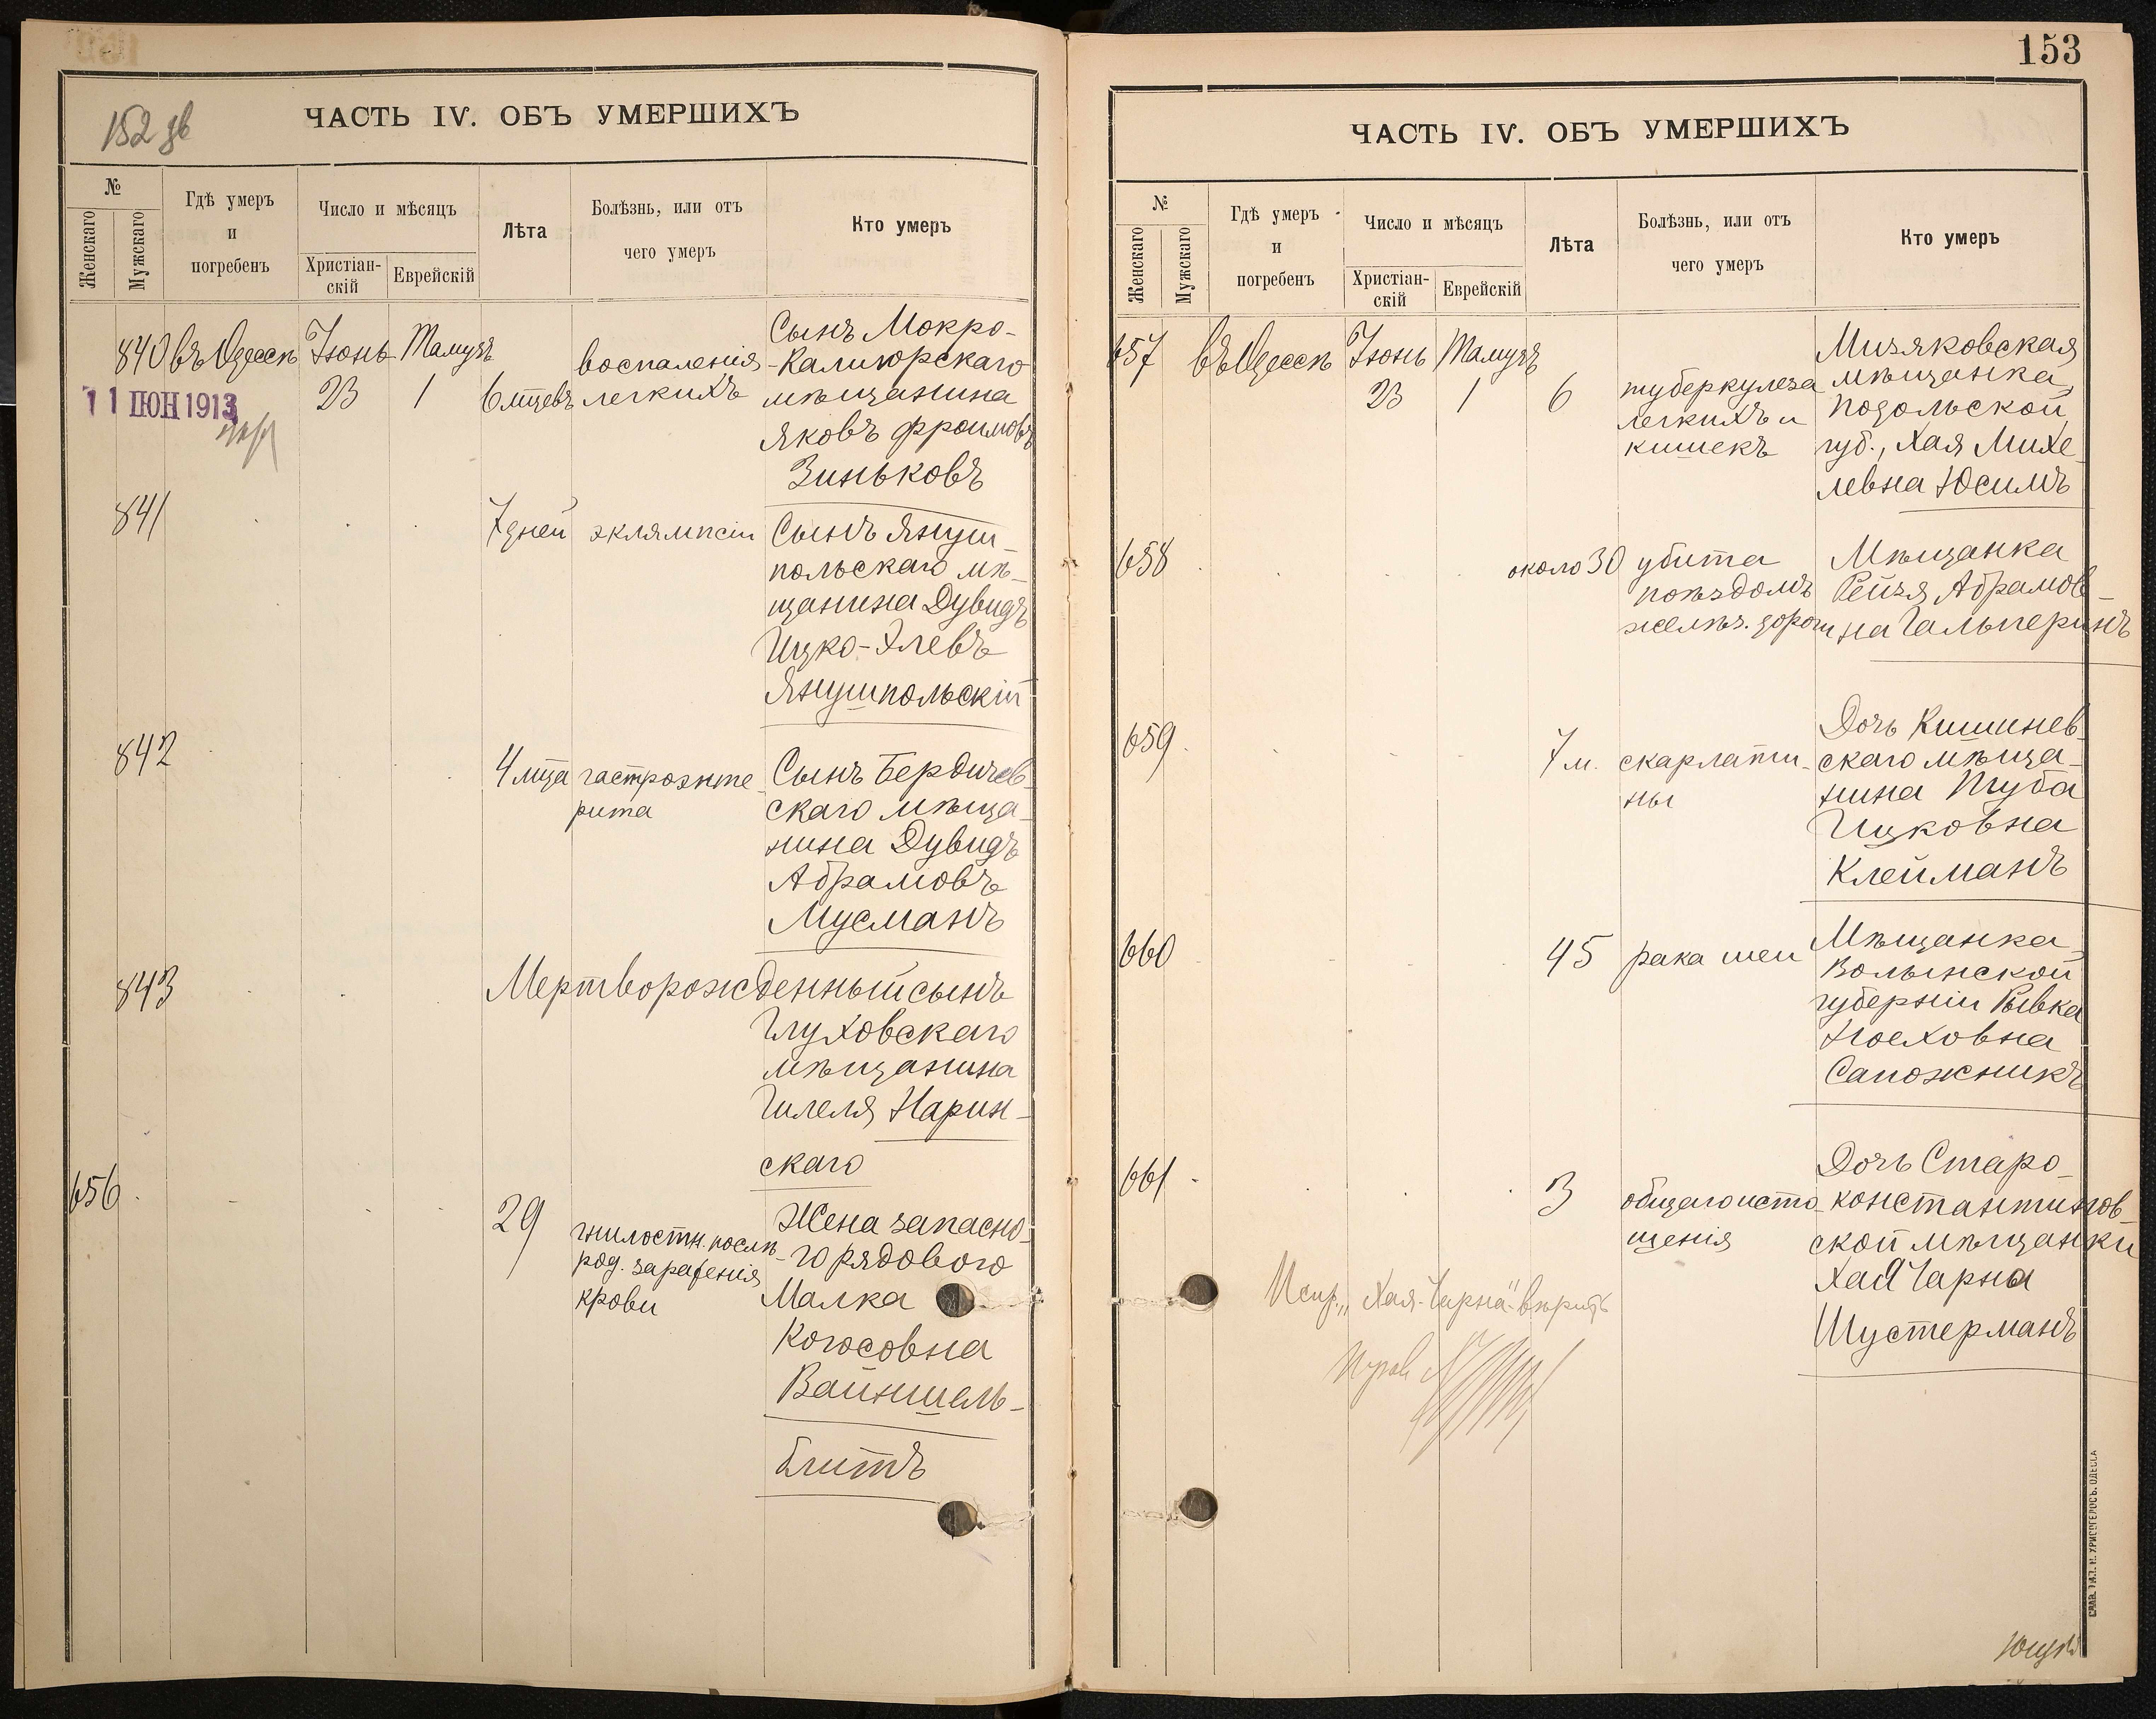 152 зв
ЧАСТЬ IV. ОБЪ УМЕРШИХЪ
№
Женскаго
Мужскаго
Гдѣ умеръ
и
погребенъ
Число и мѣсяцъ
Христіан-
скій
Еврейскій
Лѣта
Болѣзнь, или отъ
чего умеръ
Кто умеръ
840 въ Одессѣ Іюнь Тамузъ
23 1 6 мцевъ воспаленія
легкихъ
Сынъ Мокро-
-Калигорскаго
мѣщанина
Яковъ Фроимовъ
Зиньковъ
11 ІЮН 1913
841 7 дней эклямпсіи
Сынъ Януш-
польскаго мѣ-
щанина Дувидъ
Ицко-Элевъ
Янушпольскій
842 4 мца гастроэнте-
рита
Сынъ Бердичев-
скаго мѣща-
нина Дувидъ
Абрамовъ
Мусманъ
843 Мертворожденный сынъ
Глуховскаго
мѣщанина
Гилеля Нарин-
скаго
656 29 гнилостн. послѣ-
род. зараженія
крови
Жена запасно-
го рядового
Малка
Когосовна
Вайншель-
блитъ
153
ЧАСТЬ IV. ОБЪ УМЕРШИХЪ
№
Женскаго
Мужскаго
Гдѣ умеръ
и
погребенъ
Число и мѣсяцъ
Христіан-
скій
Еврейскій
Лѣта
Болѣзнь, или отъ
чего умеръ
Кто умеръ
657 въ Одессѣ Іюнь Тамузъ
23 1 6 туберкулеза
легкихъ и
кишекъ
Мизяковская
мѣщанка,
Подольской
губ., Хая Михе-
левна Юсимъ
658 около 30 убита
поѣздомъ
желѣз. дороги
Мѣщанка
Рейзя Абрамов-
на Гальперинъ
659 7 м. скарлати-
ны
Дочь Кишинев-
скаго мѣща-
нина Туба
Ицковна
Клейманъ
660 45 рака шеи
Мѣщанка
Волынской
губерніи Рывка
Ноеховна
Сапожникъ
661 3 общаго исто-
щенія
Дочь Старо-
константинов-
ской мѣщанки
Хая Чарна
Шустерманъ
Испр. „Хая-Чарна" вѣрить
СЛАВ. ТИП. Н. ХРИСОГЕЛОСЪ. ОДЕССА